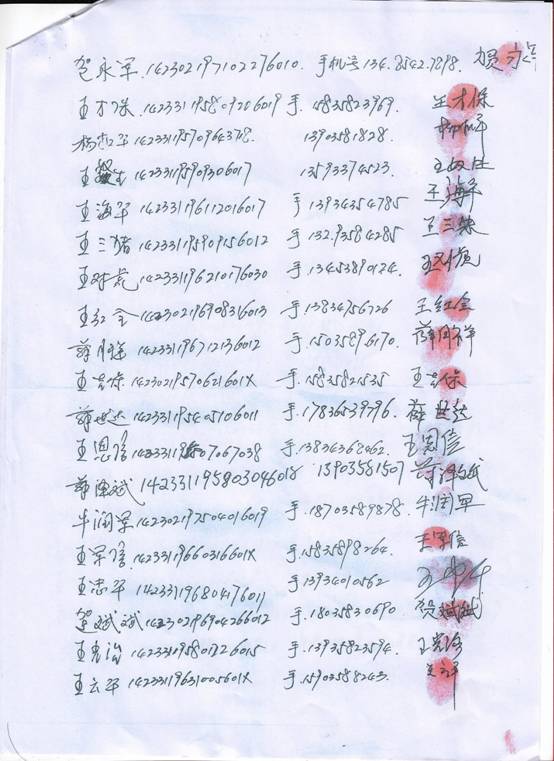 贺永军 142302197102276010 手机号 134 3542 7298 贺永军
王才保 142331195809206019 手.15835823969 王才保
13903581828
142331195909306017 13593374523
王海平 142331196112016017 手 13934354785 王海平
王三猪 142331195909156012 手 13293584285 王三猪
142331196210176030 手 13453890124
王红全 142302196908316013 手.13834756726 王红全
薛月祥 142331196712136012 手.15035896170 薛月祥
王吉保 14230219570621601X 手.15835821535 王吉保
薛世达 142331195405106011 手.17836539796 薛世达
王恩信 手.13834368462 王恩信
薛泽斌 142331195803046018 13903581507 薛泽斌
牛润军 142302197504016019 手.18703589878 牛润军
王军信 14233119660316601X 手.15835898264 王军信
王忠平 142331196804176011 手 13934010562
贺斌斌 142302196904266012 手.18035830690 贺斌斌
142331195801226015 手.13935823594
王云平 14233119631005601X 手.15903588243 王云平